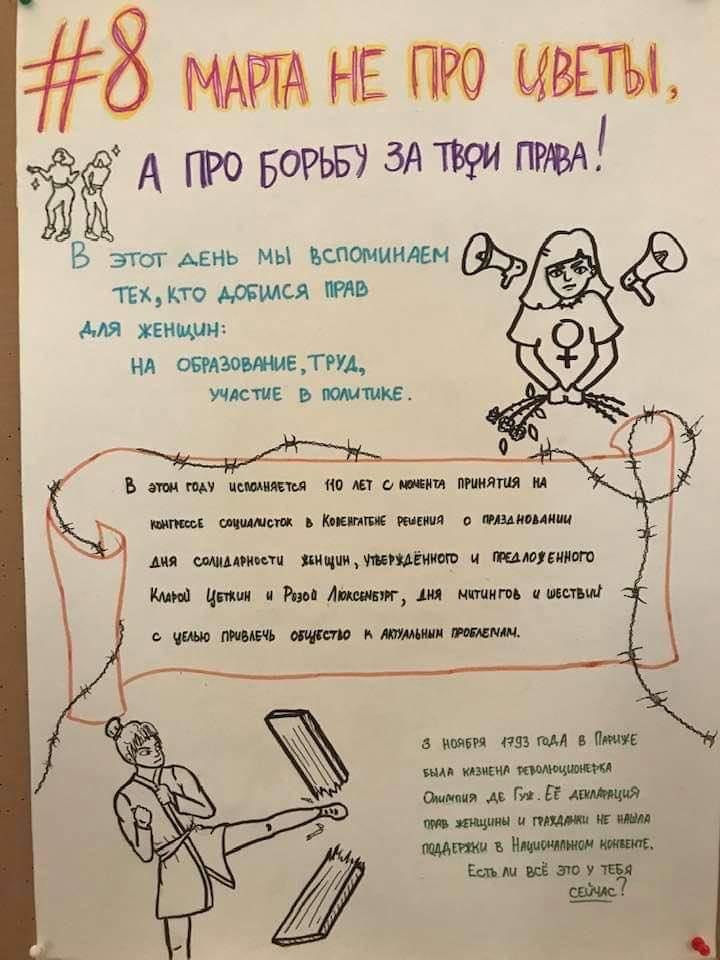 #8 МАРТА НЕ ПРО ЦВЕТЫ,
А ПРО БОРЬБУ ЗА ТВОИ ПРАВА!
В ЭТОТ ДЕНЬ МЫ ВСПОМИНАЕМ
ТЕХ, КТО ДОБИЛСЯ ПРАВ
ДЛЯ ЖЕНЩИН:
НА ОБРАЗОВАНИЕ, ТРУД,
УЧАСТИЕ В ПОЛИТИКЕ.
В ЭТОМ ГОДУ ИСПОЛНЯЕТСЯ 110 ЛЕТ С МОМЕНТА ПРИНЯТИЯ НА
КОНГРЕССЕ СОЦИАЛИСТОК В КОПЕНГАГЕНЕ РЕШЕНИЯ О ПРАЗДНОВАНИИ
ДНЯ СОЛИДАРНОСТИ ЖЕНЩИН, УТВЕРЖДЁННОГО И ПРЕДЛОЖЕННОГО
КЛАРОЙ ЦЕТКИН И РОЗОЙ ЛЮКСЕМБУРГ, ДНЯ МИТИНГОВ И ШЕСТВИЙ
С ЦЕЛЬЮ ПРИВЛЕЧЬ ОБЩЕСТВО К АКТУАЛЬНЫМ ПРОБЛЕМАМ.
3 НОЯБРЯ 1793 ГОДА В ПАРИЖЕ
БЫЛА КАЗНЕНА РЕВОЛЮЦИОНЕРКА
ОЛИМПИЯ ДЕ ГУЖ. ЕЁ ДЕКЛАРАЦИЯ
ПРАВ ЖЕНЩИНЫ И ГРАЖДАНКИ НЕ НАШЛА
ПОДДЕРЖКИ В НАЦИОНАЛЬНОМ КОНВЕНТЕ.
ЕСТЬ ЛИ ВСЁ ЭТО У ТЕБЯ
СЕЙЧАС?